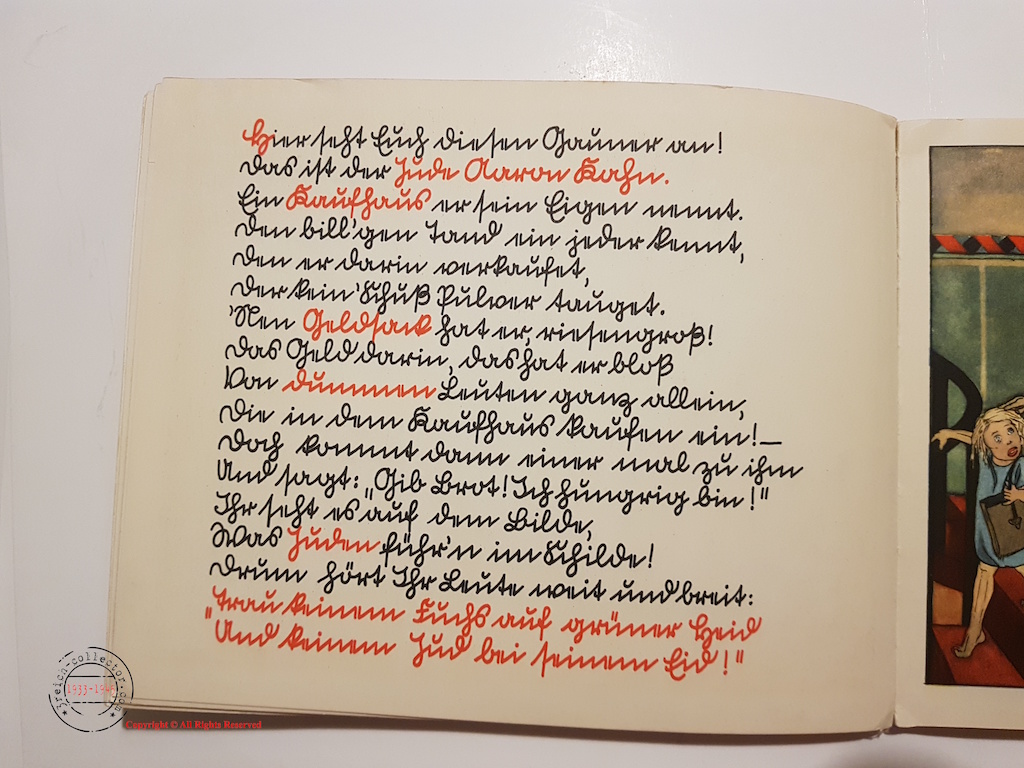 Hier seht Euch diesen Gauner an!
Das ist der Jude Aaron Kahn.
Ein Kaufhaus er sein Eigen nennt.
Den bill'gen Tand ein jeder kennt,
Den er darin verkaufet,
Der kein' Schuß Pulver tauget.
'Nen Geldsack hat er, riesengroß!
Das Geld darin, das hat er bloß
Von dummen Leuten ganz allein,
Die in dem Kaufhaus kaufen ein!—
Doch kommt dann einer mal zu ihm
Und sagt: „Gib Brot! Ich hungrig bin!"
Ihr seht es auf dem Bilde,
Was Juden führ'n im Schilde!
Drum hört Ihr Leute weit und breit:
„Trau keinem Fuchs auf grüner Heid
Und keinem Jud bei seinem Eid!"
3reich-collector.com
1933-1945
Copyright © All Rights Reserved